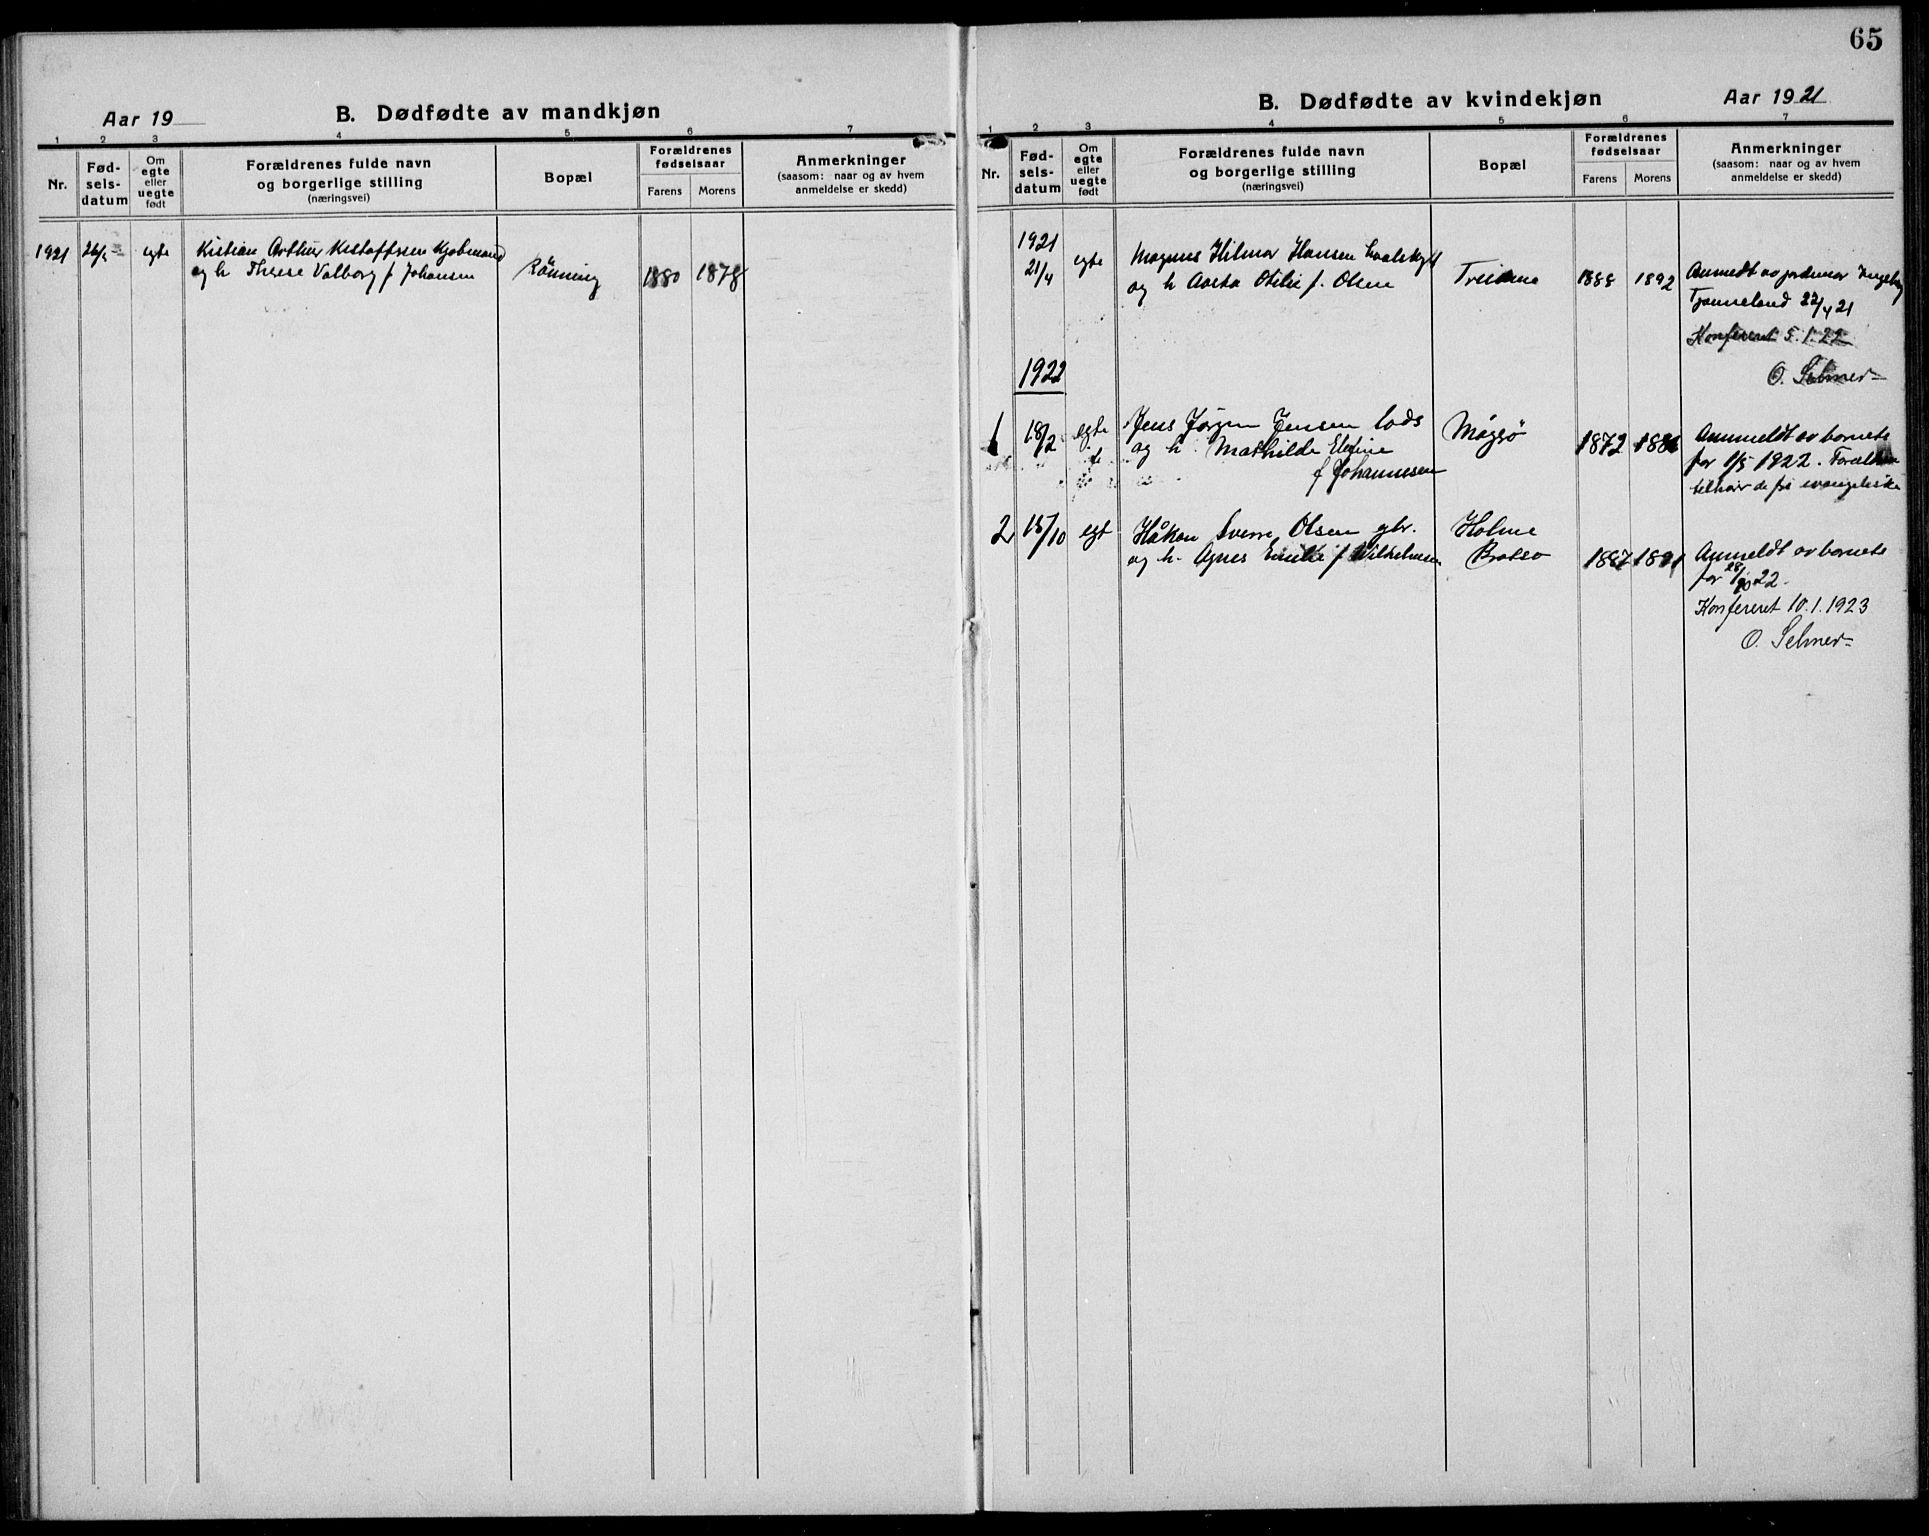 Aar 19
B. Dødfødte av mandkjøn
1 2 3 4 5 6 7
Nr.
Fød-
sels-
datum
Om
egte
eller
uegte
født
Forældrenes fulde navn
og borgerlige stilling
(næringsvei)
Bopæl
Forældrenes
fødselsaar
Farens Morens
Anmerkninger
(saasom: naar og av hvem
anmeldelse er skedd)
1921 egte Kristian Arthur Kristoffersen Kjøbmand
og h Therese Valborg f Johansen
Rönning
1880 1878
65
B. Dødfødte av kvindekjøn
Aar 1921
1 2 3 4 5 6 7
Nr.
Fød-
sels-
datum
Om
egte
eller
uegte
født
Forældrenes fulde navn
og borgerlige stilling
(næringsvei)
Bopæl
Forældrenes
fødselsaar
Farens Morens
Anmerkninger
(saasom: naar og av hvem
anmeldelse er skedd)
1921
21/4 egte Magnus Hilmar Hansen
og h Aasta Otilie f. Olsen
1888 1892
Anmeldt av jordmor
Tjønneland 22/4 21
Konfereret 5.1.22
O. Selmer
1922
1 18/2 egte Jens Jörgen Jensen lods
og h. Mathilde Elefine
f Johannesen
Mågsö
1872
Anmeldt av barnets
far 1/5 1922.
tilhører de fri evangeliske
2 15/10 egt Håkon Sverre Olsen gbr.
og h. Agnes Emilie f Vilhelmsen
Holme
1887 1891
Anmeldt av barnets
far 28/10 22.
Konfereret 10.1.1923
O. Selmer